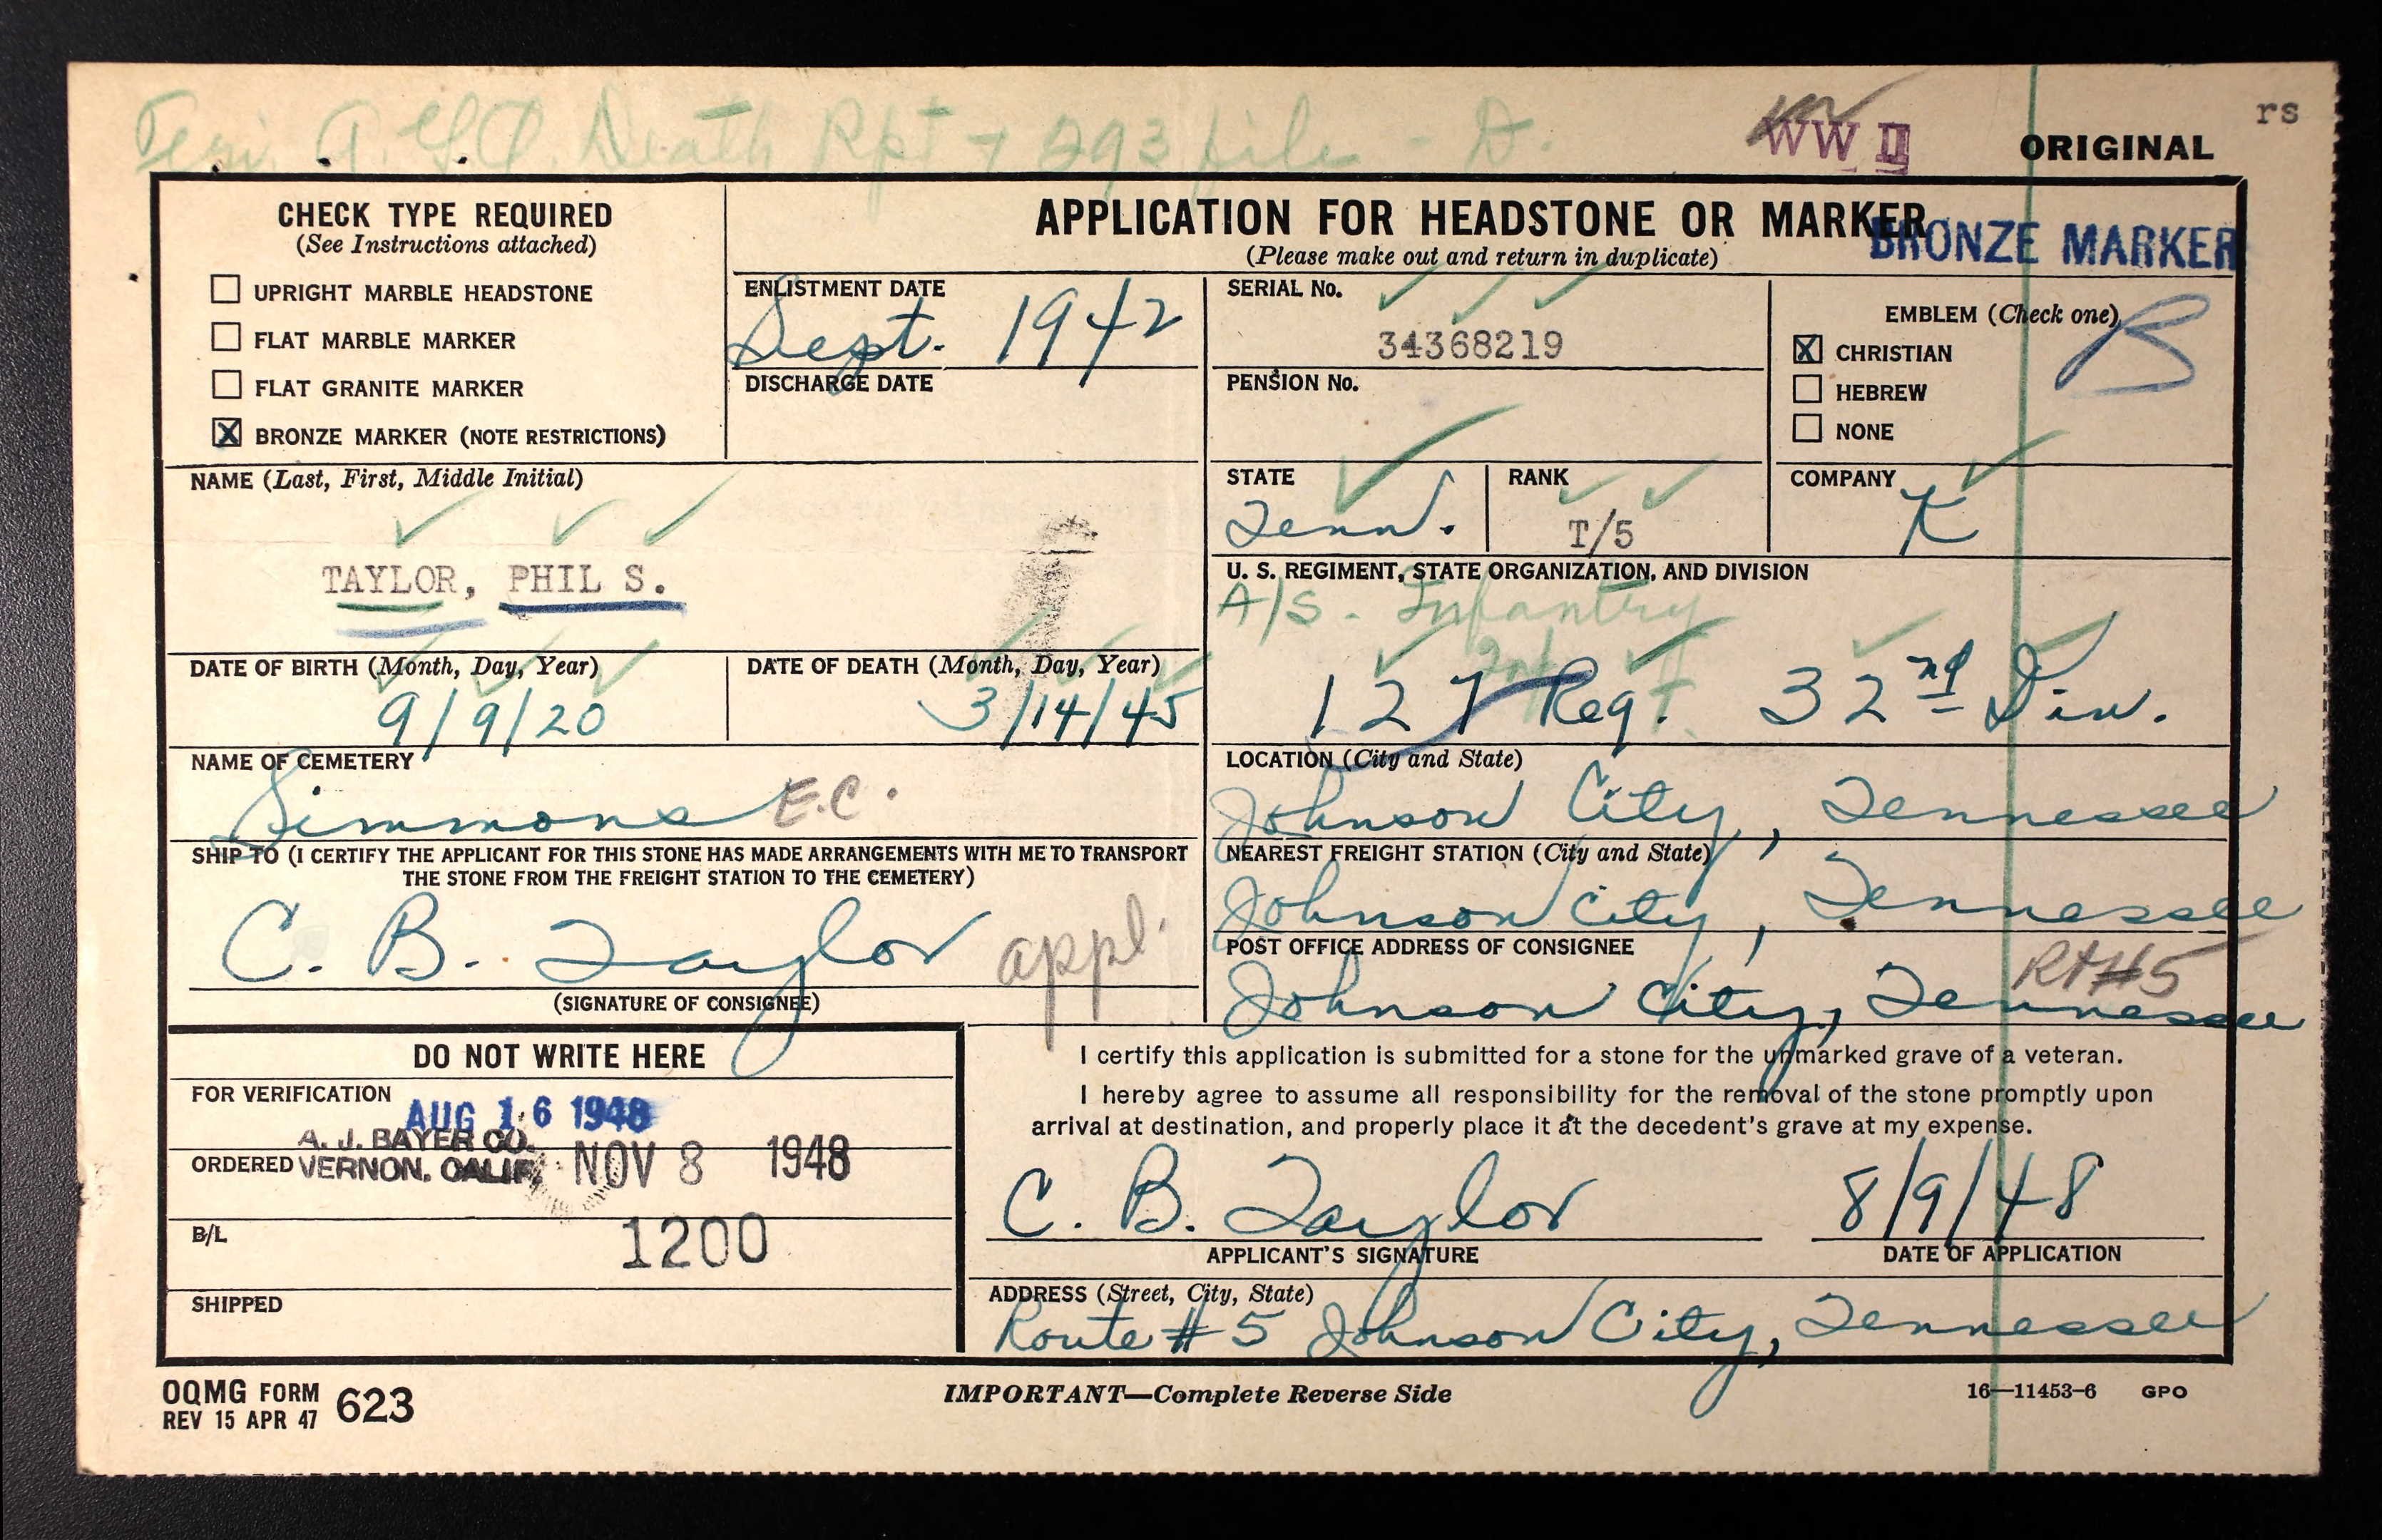 A.G.O. Death Rpt + 293 file - D.
WW II
rs
ORIGINAL
CHECK TYPE REQUIRED
(See Instructions attached)
UPRIGHT MARBLE HEADSTONE
FLAT MARBLE MARKER
FLAT GRANITE MARKER
X BRONZE MARKER (NOTE RESTRICTIONS)
APPLICATION FOR HEADSTONE OR MARKER
(Please make out and return in duplicate)
BRONZE MARKER
ENLISTMENT DATE
Sept. 1942
DISCHARGE DATE
SERIAL No.
34368219
PENSION No.
EMBLEM (Check one)
B
X CHRISTIAN
HEBREW
NONE
NAME (Last, First, Middle Initial)
TAYLOR, PHIL S.
STATE
Tenn.
RANK
T/5
COMPANY
K
U. S. REGIMENT, STATE ORGANIZATION, AND DIVISION
A/S. Infantry
Inf
127 Reg. 32nd Div.
DATE OF BIRTH (Month, Day, Year)
9/9/20
DATE OF DEATH (Month, Day, Year)
3/14/45
NAME OF CEMETERY
Simmons E.C.
LOCATION (City and State)
Johnson City, Tennessee
SHIP TO (I CERTIFY THE APPLICANT FOR THIS STONE HAS MADE ARRANGEMENTS WITH ME TO TRANSPORT
THE STONE FROM THE FREIGHT STATION TO THE CEMETERY)
C. B. Taylor appl.
(SIGNATURE OF CONSIGNEE)
NEAREST FREIGHT STATION (City and State)
Johnson City, Tennessee
POST OFFICE ADDRESS OF CONSIGNEE
Rt#5
Johnson City, Tennessee
DO NOT WRITE HERE
FOR VERIFICATION
AUG 16 1948
A. J. BAYER CO.
ORDERED VERNON, CALIF. NOV 8 1948
B/L
1200
SHIPPED
I certify this application is submitted for a stone for the unmarked grave of a veteran.
I hereby agree to assume all responsibility for the removal of the stone promptly upon
arrival at destination, and properly place it at the decedent's grave at my expense.
C. B. Taylor 8/9/48
APPLICANT'S SIGNATURE DATE OF APPLICATION
ADDRESS (Street, City, State)
Route #5 Johnson City, Tennessee
OQMG FORM 623
REV 15 APR 47
IMPORTANT—Complete Reverse Side
16—11453-6 GPO